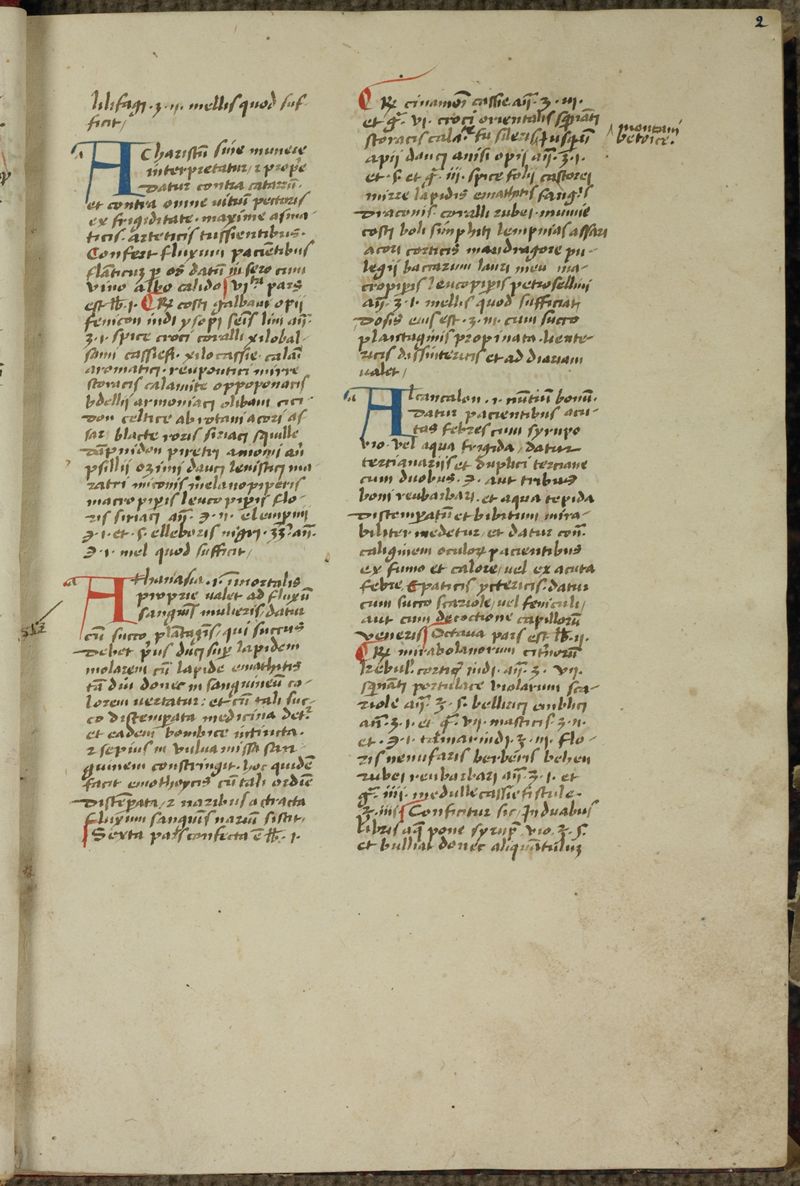 2
lilifagi · ʒ · ij · mellis quod suf
ficit /
a
Acharistū sine munere
interpretatur / ⁊ prop̄e
datur contra catarrū ·
et contra omne uitiū pectoris
ex frigiditate · maxime asma
ticis · arteticis tussientibus ·
Confert fluxum pacientibus
flāticuʒ p os datū in sero cum
vino albo calido vjᵗᵃ pars
est lb · j · R̄ costi galbani opij
fenicon indi ysopi seīs lini aīī ·
ʒ · j · spice croci coralli xilobal
sami cassiefi · xilocassie · calaī
aromatici · reupontici mirre
storacis calamite oppoponacis
bdellij armoniaci olibani cici
don celtice abrotani acori as
sari blacte rosis siriaci squille
piretri amomi aīī
psillij ozimi dauci leuistici ma
ratri miconis melanopiperis
macropiperis leucopiperis flo
ris siriaci aīī · ℈ · ij · elempnij
℈ · j · et · s · ellebori nigri aīī ·
℈ · j · mel quod sufficit /
a
Athanasia · i · inmortalis
proprie ualet ad fluxū
sanguīs mulieris / datur
cū succo plātagīs / qui succus
debet p̄us duci sup lapidem
molarem cū lapide emathitis
tā diu donec in sanguineū co
lorem uertatur : et cū tali suc
co distemperata medicina det̄
et eadem bombice intincta ·
⁊ sepius in vulua missa san
guinem constringit · hoc quidē
facit emothoycis cū tali ordīe
distēpata / ⁊ naribus attracta
fluxum sanguīs nariū sistit /
Sexta pars confecta ē lb · j ·
R̄ cinamōi cassie aīī · ʒ · iij ·
et gᵃ · vj · croci orientalis sqnāti
storacis calaᵉ
montani
betoice ·
apij dauci anisi opij aīī · ʒ · j ·
et · s · et gᵃ · iij · spice folij castorei
mirre lapidis emathitis sangˡs
draconis · coralli rubei · mumie
costi boli simphiti lempnias assari
acori corticis mandragore pu
legij baccarum lauri meu ma
cropipis leucopipis petrosellini
aīī · ʒ · j · mellis quod sufficiat
dosis eius est · ʒ · iij · cum succo
plantaginis propinata · liente
ricis dissintericis et ad diariam
ualet /
a
Alcancalon · i · nūtiū bonū ·
datur pacientibus acu
tas febres cum syrupo
vio · vel aqua frigida / datur
tercianarijs et duplici terciane
cum duobus · ℈ · aut tribus
boni reubarbari · et aqua tepida
distempatū et bibitum mira
biliter medetur / et datur conᵃ
caliginem oculoꝝ pacientibus
ex fumo et calore / uel ex acuta
febre / Epaticis yctericis · datur
cum succo scariole / uel feniculi /
aut cum decoctione capillorū
veneris Octaua pars est lb · ij ·
R̄ mirabolanorum citrinorū
kebul · corticū indi · aīī · ʒ · vij ·
sqnāti portulace violarum sca
riole aīī · ʒ · s · bellirici emblici
aīī · ʒ · j · et gᵃ · vij · masticis ʒ · ij ·
et · ℈ · j · tamarindi · ʒ · iij · flo
ris nenufaris berberis behen
rubei reubarbari aīī · ʒ · j · et
gᵃ · iiij · medulle cassie fistule ·
ʒ · iiij Conficitur sic / In duabus
libris aq̄ pone syrup vio · ʒ · s ·
et bulliat donec aliquātuluʒ